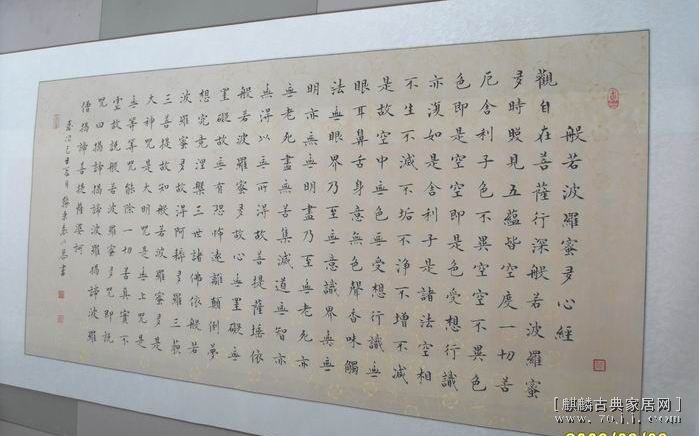 般若波羅蜜多心經
觀自在菩薩行深般若波羅蜜
多時照見五蘊皆空度一切苦
厄舍利子色不異空空不異色
色即是空空即是色受想行識
亦復如是舍利子是諸法空相
不生不滅不垢不淨不增不減
是故空中無色無受想行識無
眼耳鼻舌身意無色聲香味觸
法無眼界乃至無意識界無無
明亦無無明盡乃至無老死亦
無老死盡無苦集滅道無智亦
無得以無所得故菩提薩埵依
般若波羅蜜多故心無罣礙無
罣礙故無有恐怖遠離顛倒夢
想究竟涅槃三世諸佛依般若
波羅蜜多故得阿耨多羅三藐
三菩提故知般若波羅蜜多是
大神咒是大明咒是無上咒是
無等等咒能除一切苦真實不
虛故說般若波羅蜜多咒即說
咒曰揭諦揭諦波羅揭諦波羅
僧揭諦菩提薩婆訶
歲次己丑書
[麒麟古典家居网]
www.70jj.com